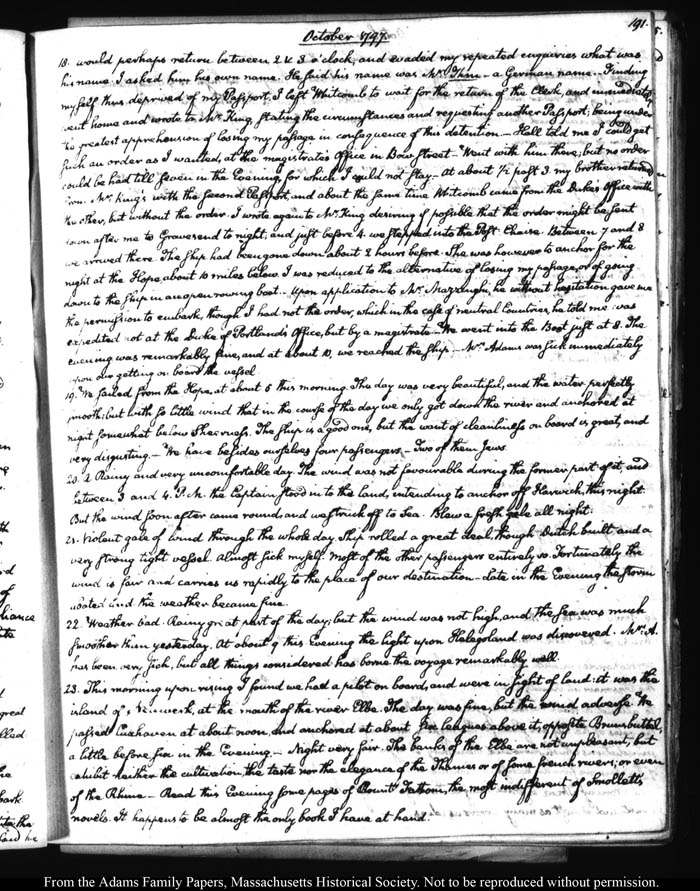 191.
October 1797.
18. would perhaps return between 2 & 3 o'clock, and evaded my repeated enquiries what was
his name. I asked him his own name. He said his name was Mr. — a German name.— Finding
myself thus deprived of my Passport, I left Whitcomb to wait for the return of the Clerk, and immediately
went home and wrote to Mr. King, stating the circumstances and requesting another Passport; being under
the greatest apprehension of losing my passage in consequence of this detention.— Hall told me I could get
such an order as I wanted, at the magistrate's Office in Bow Street.— Went with him there; but no order
could be had till seven in the Evening, for which I could not stay.— At about ½ past 3. my brother returned
from Mr. King's with the second Passport, and about the same time Whitcomb came from the Duke's Office with
the other, but without the order. I wrote again to Mr. King desiring if possible that the order might be sent
down after me to Gravesend to night; and just before 4. we stepped into the Post Chaise. Between 7 and 8
we arrived there. The ship had been gone down about 2 hours before. She was however to anchor for the
night at the Hope about 10 miles below. I was reduced to the alternative of losing my passage, or of going
down to the ship in an open rowing boat. Upon application to Mr. Mazzinghi, he without hesitation gave me
the permission to embark, though I had not the order; which in the case of neutral Countries, he told me was
expedited not at the Duke of Portland's Office, but by a magistrate. We went into the Boat just at 8. The
evening was remarkably fine, and at about 10, we reached the ship.— Mrs. Adams was sick immediately
upon our getting on board the vessel
19. We sailed from the Hope, at about 5 this morning. The day was very beautiful, and the water perfectly
smooth; but with so little wind that in the course of the day we only got down the river and anchored at
night somewhat below Sheerness. The ship is a good one, but the want of cleanliness on board is great, and
very disgusting.— We have besides ourselves four passengers.— Two of them Jews.
20. A Rainy and very uncomfortable day. The wind was not favourable during the former part of it, and
between 3 and 4. P.M. the Captain stood in to the land, intending to anchor off Harwich, this night.
But the wind soon after came round, and we struck off to Sea. Blew a fresh gale all night.
21. Violent gale of wind through the whole day. Ship rolled a great deal, though Dutch built and a
very strong tight vessel. Almost sick myself. Most of the other passengers entirely so. Fortunately the
wind is fair and carries us rapidly to the place of our destination. Late in the Evening the storm
abated and the weather became fine.
22. Weather bad. Rainy great part of the day; but the wind was not high, and the sea was much
smoother than yesterday. At about 9 this Evening the light upon Helegoland was discovered. Mrs. A.
has been very sick, but all things considered has borne the voyage remarkably well.
23. This morning upon rising I found we had a pilot on board, and were in sight of land: it was the
island of Neuwerk, at the mouth of the river Elbe. The day was fine, but the wind adverse. We
passed Cuxhaven at about noon, and anchored at about leagues above it, opposite Brunsbuttel,
a little before six in the Evening.— Night very fair. The banks of the Elbe are not unpleasant, but
exhibit neither the cultivation, the taste nor the elegance of the Thames or of some french rivers; or even
of the Rhine.— Read this Evening some pages of Count Fathom, the most indifferent of Smollett's
novels. It happens to be almost the only book I have at hand.
From the Adams Family Papers, Massachusetts Historical Society. Not to be reproduced without permission.